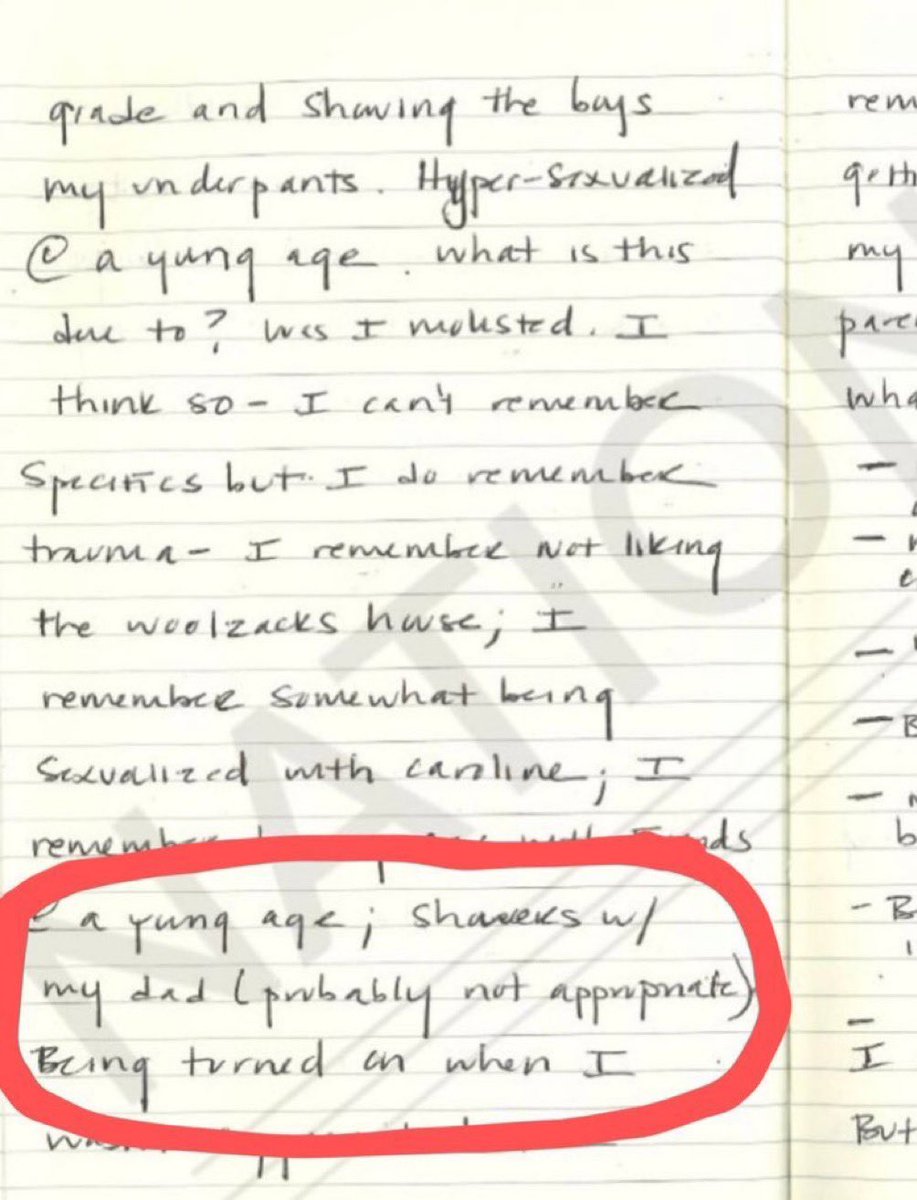 grade and showing the boys
my underpants. Hyper-sexualized
@ a yung age. what is this
due to? Was I molested. I
think so - I can't remember
specifics but I do remember
trauma - I remember not liking
the woolzacks house; I
remember somewhat being
sexualized with caroline; I
@ a yung age; showers w/
my dad (probably not appropriate)
Being turned on when I
my
I
But
NATION